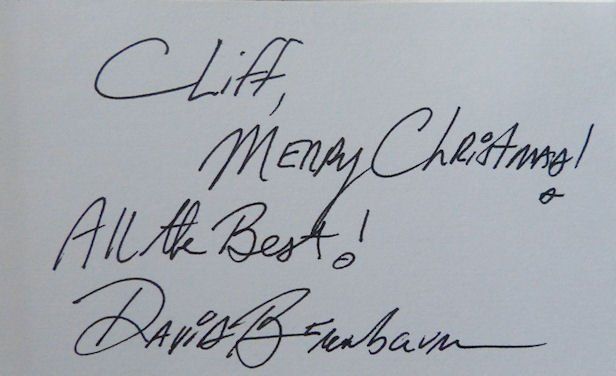 Cliff,
Merry Christmas!
All the Best!
David Birnbaum